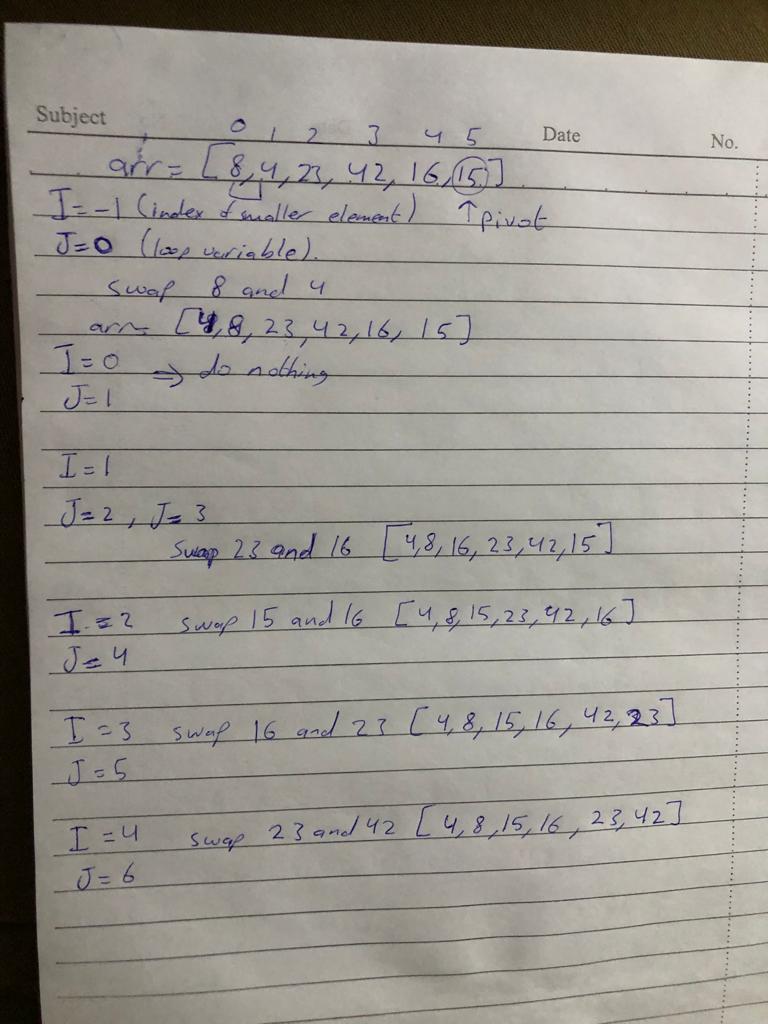 Subject
Date
No.
0 1 2 3 4 5
arr = [8,4,23, 42, 16,15]
I=-1 (index of smaller element) ↑pivot
J=0 (loop variable).
swap 8 and 4
arr= [4,8, 23,42,16, 15]
I=0 ⇒ do nothing
J=1
I=1
J=2 , J=3
swap 23 and 16 [4,8,16,23,42,15]
I=2 swap 15 and 16 [4,8,15,23,42,16]
J=4
I=3 swap 16 and 23 [4,8,15,16,42,23]
J=5
I=4 swap 23 and 42 [4,8,15,16,23,42]
J=6